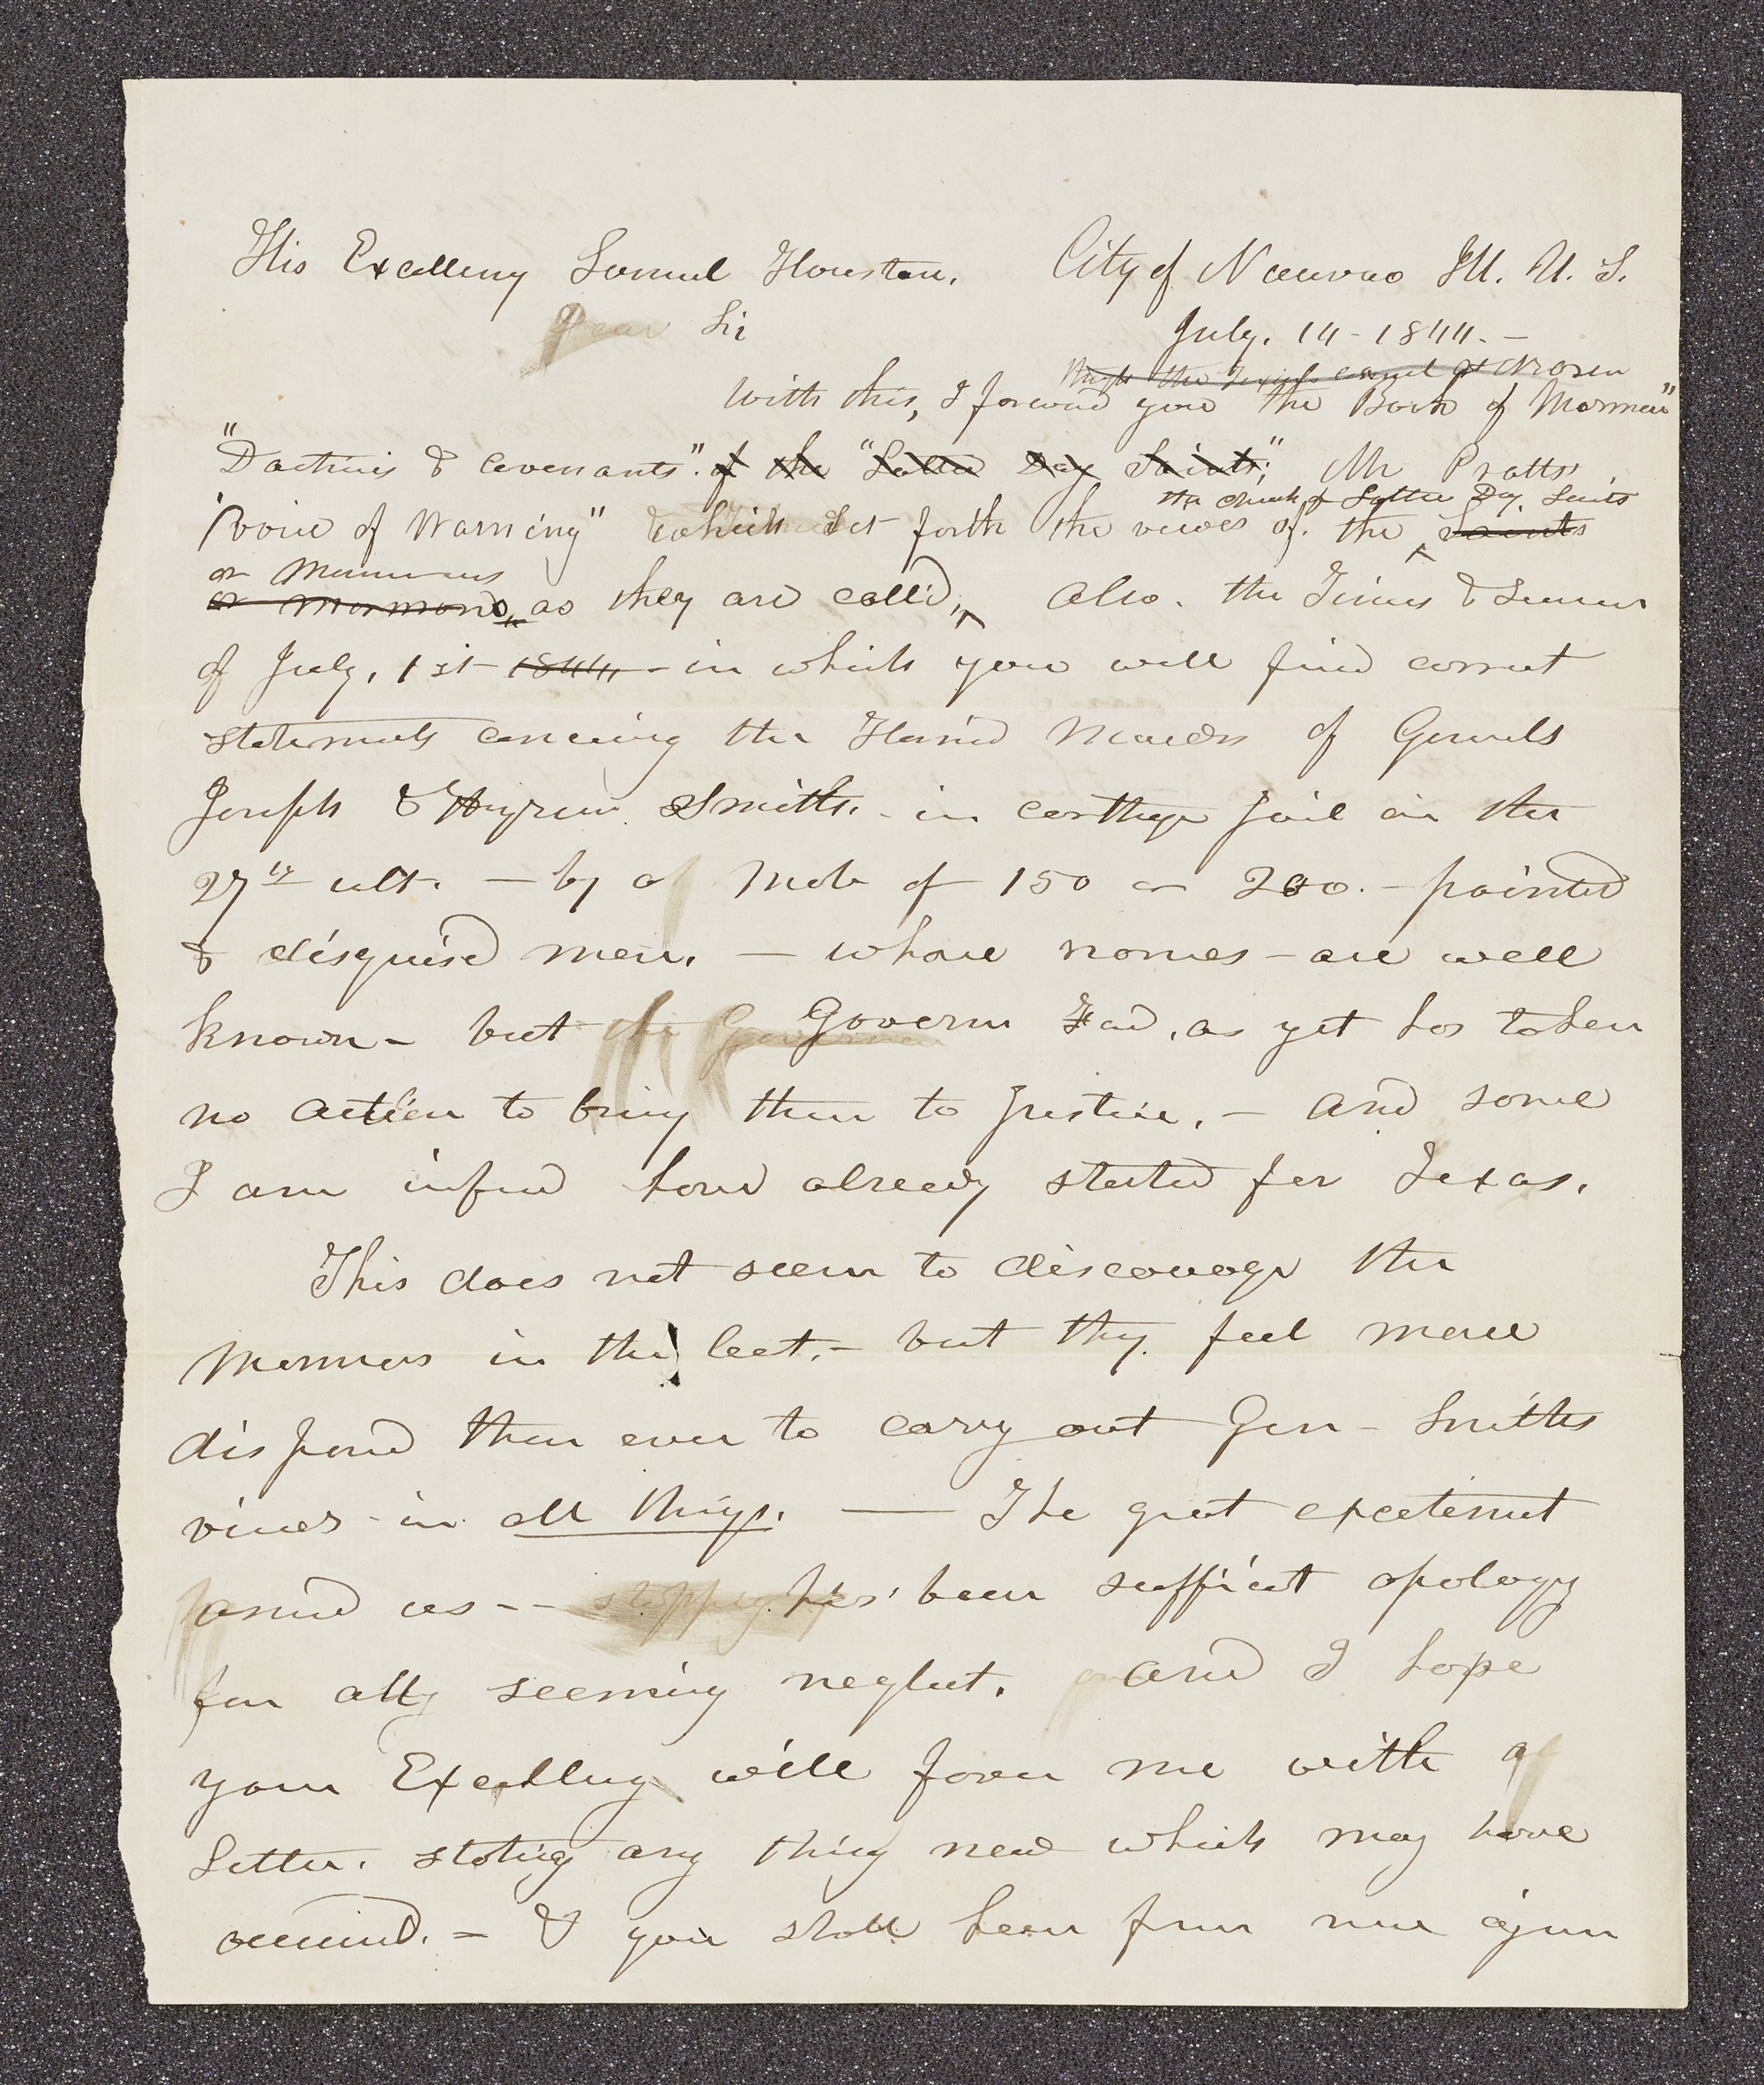 His Excelleny Samuel Houston. City of Nauvoo Ill. U. S.
Dear Sir July. 14 - 1844. -
through the Texas consul at N Orlean
With this, I forward you "the Book of Mormon"
"Doctrins & Covenants". of the "Latter Day Saints;" Mr Pratts
the Church of Latter Day Saints
"voice of Warning" which set forth the views of. the Saints
or Mormons
or Mormons, as they are call'd, Also. the Times & Seasons
of July. 1st 1844 - in which you will find correct
statements concening the Horrid Murders of Generals
Joseph & Hyrum Smith. - in carthage Jail on the
27th ult. - by a Mob of 150 or 200. - painted
& disguised men. - whose names - are well
known - but the Governor Govern Ford, as yet has taken
no action to bring them to Justice. - and some
I am informed have already started for Texas.
This does not seem to discourage the
Mormons in the least. - but they feel more
disposed then ever to carry out Gen - Smiths
views - in all things. — The great excetement
around us - - stopping has been sufficient apology
for all seeming neglect. and I hope
your Excellency will favor me with a
letter. stating any thing new which may have
occurred. - & you shall hear from me again